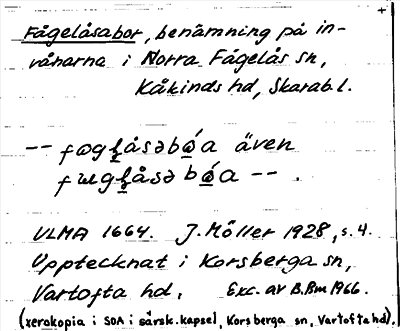 Fågelåsabor, benämning på in-
vånarna i Norra Fågelås sn,
Kåkinds hd, Skarab.l.
-- även
--.
ULMA 1664. J. Möller 1928, s. 4.
Upptecknat i Korsberga sn,
Vartofta hd. Exc. av B.Bm 1966.
(xerokopia i SOA i särsk. kapsel, Korsberga sn, Vartofta hd).